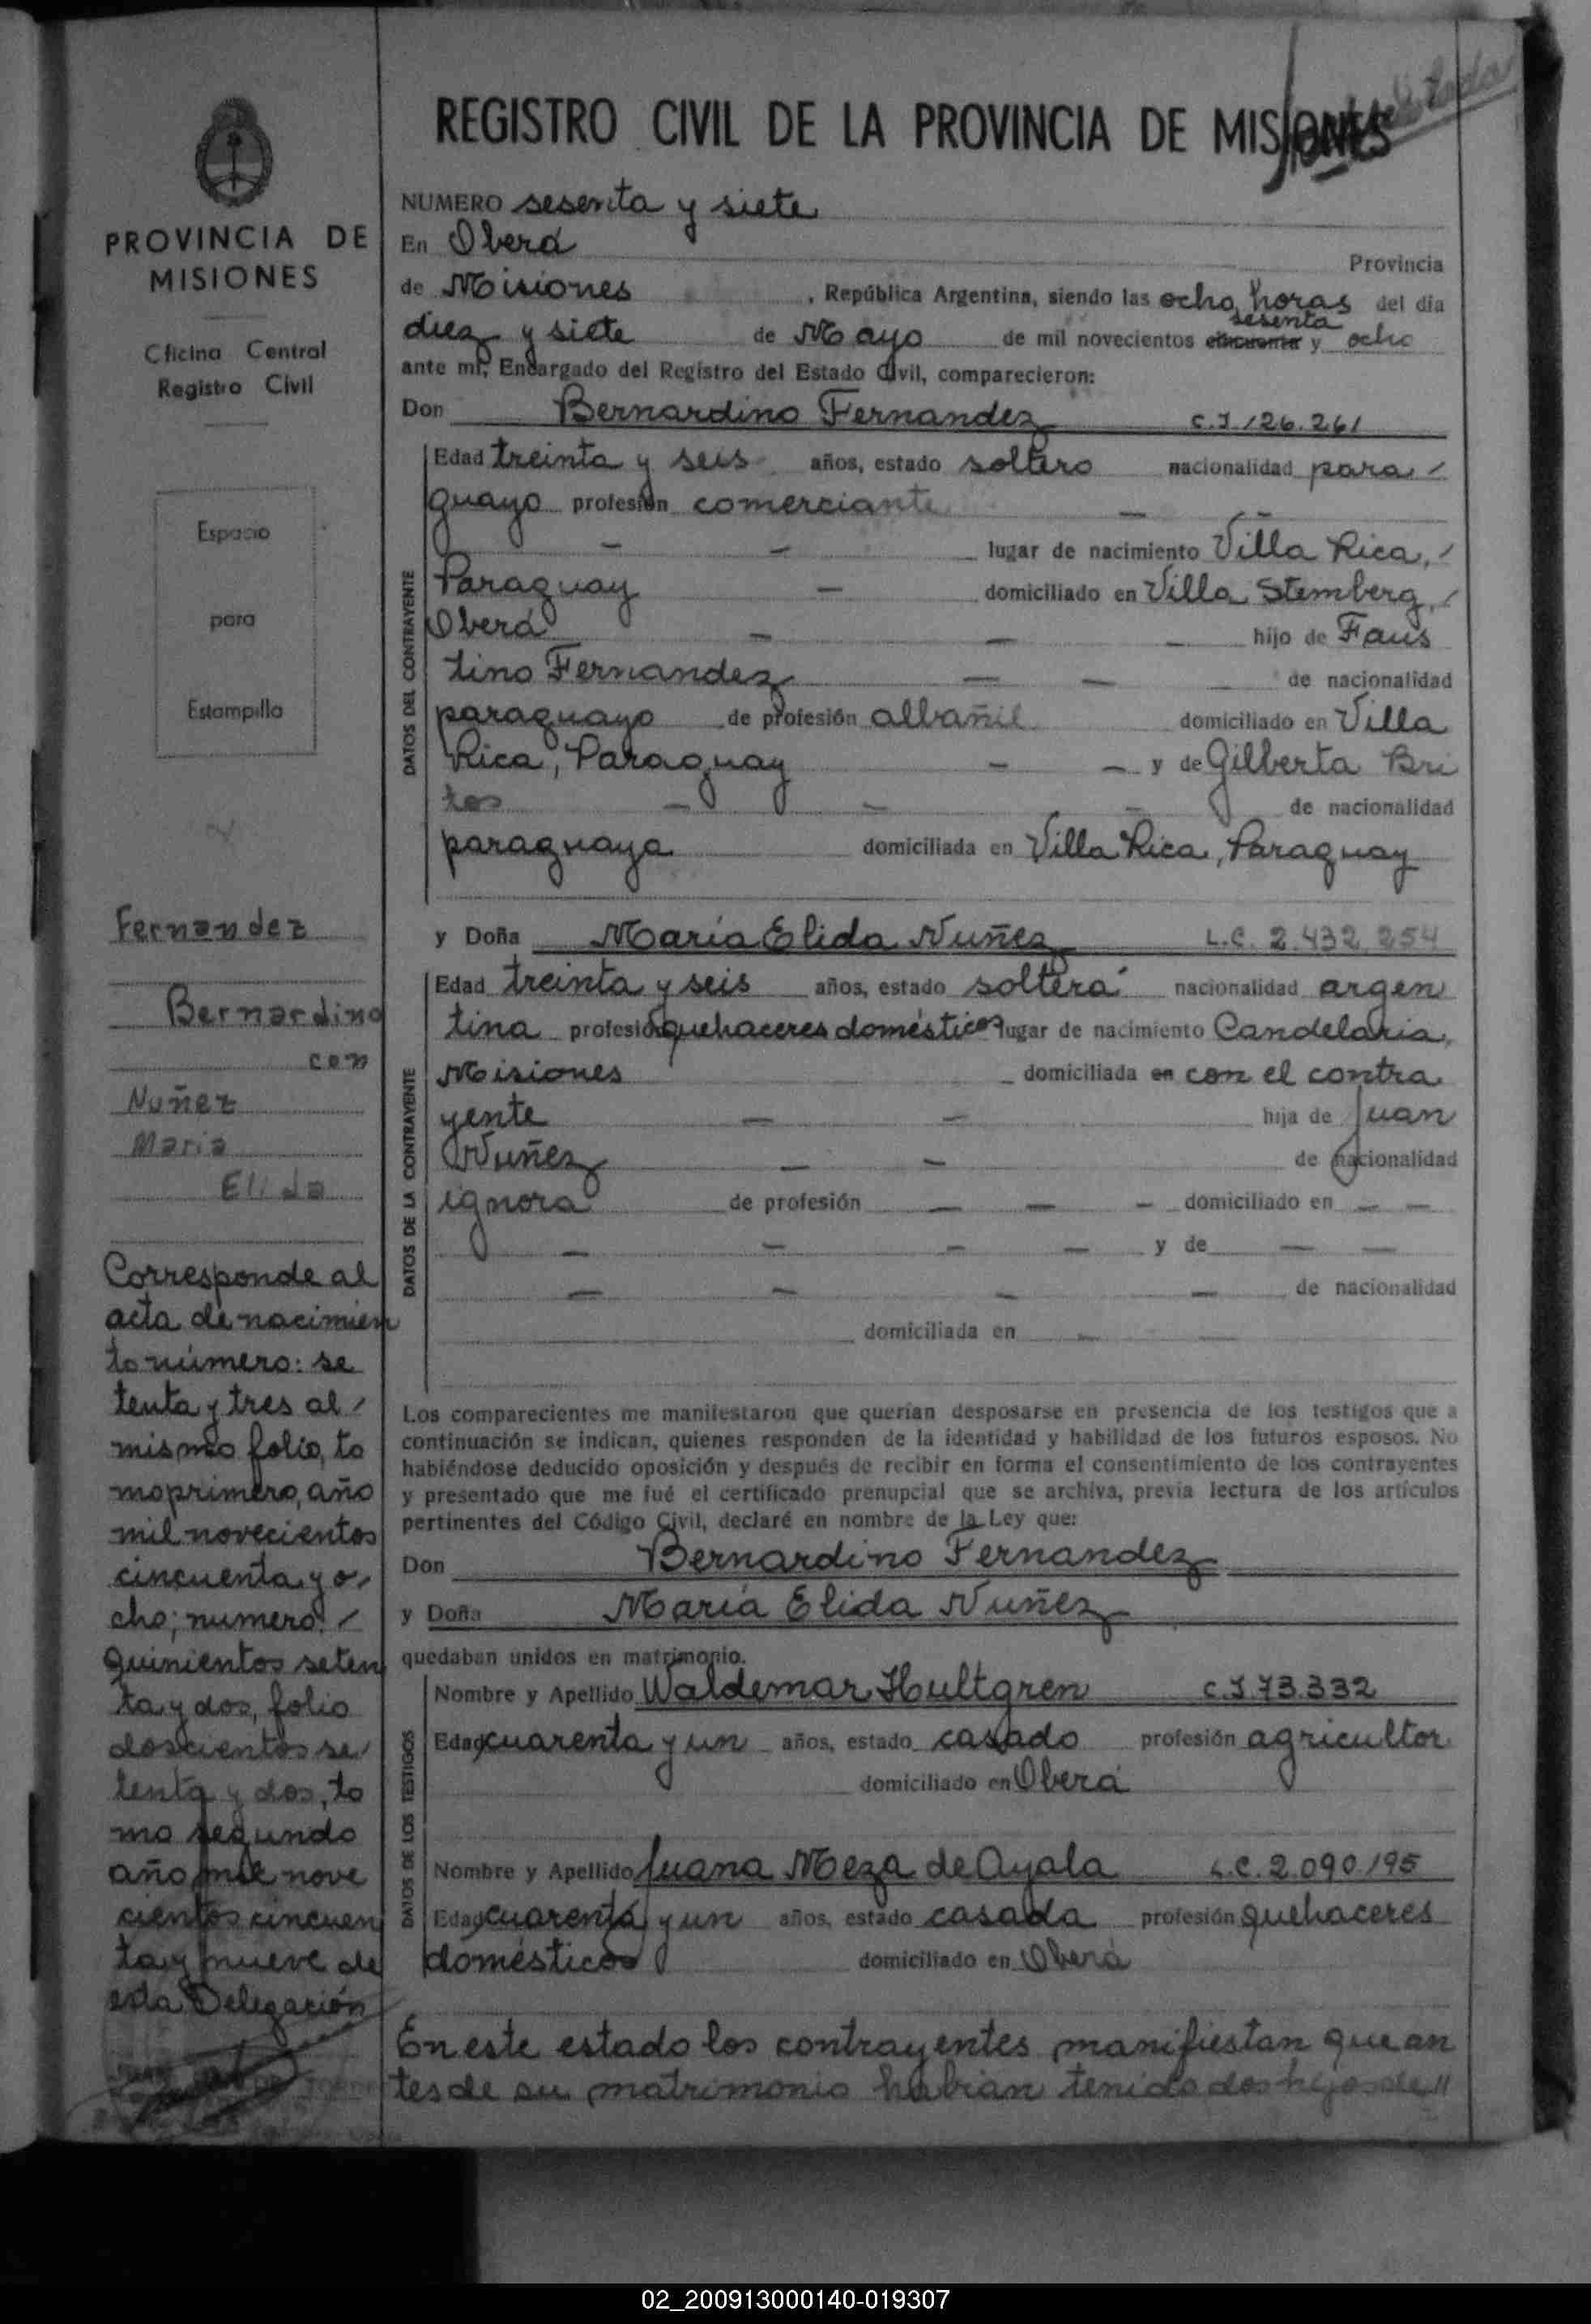 REGISTRO CIVIL DE LA PROVINCIA DE MISIONES
PROVINCIA DE
MISIONES
Oficina Central
Registro Civil
Espacio
para
Estampilla
Fernandez
Bernardino
con
Nuñez
Maria
Elida
Corresponde al
acta de nacimien
to número: se
tenta y tres al /
mismo folio, to
mo primero, año
mil novecientos
cincuenta y o/
cho; numero: /
quinientos seten
ta y dos, folio
doscientos se/
tenta y dos, to
mo segundo
año mil nove
cientos cincuen
ta y nueve de
esta Delegación
NUMERO sesenta y siete
En Oberá Provincia
de Misiones , República Argentina, siendo las ocho horas del día
sesenta
diez y siete de Mayo de mil novecientos cincuenta y ocho
ante mí, Encargado del Registro del Estado Civil, comparecieron:
Don Bernardino Fernandez C.I. 126.261
DATOS DEL CONTRAYENTE
Edad treinta y seis años, estado soltero nacionalidad para /
guayo profesión comerciante —
— — lugar de nacimiento Villa Rica, /
Paraguay — domiciliado en Villa Stemberg, /
Oberá — — — hijo de Faus
tino Fernandez — — de nacionalidad
paraguayo de profesión albañil domiciliado en Villa
Rica, Paraguay — — y de Gilberta Bri
tos — — — de nacionalidad
paraguaya domiciliada en Villa Rica, Paraguay
y Doña María Elida Nuñez L.C. 2.432.254
DATOS DE LA CONTRAYENTE
Edad treinta y seis años, estado soltera nacionalidad argen
tina profesión quehaceres domésticos lugar de nacimiento Candelaria,
Misiones domiciliada en con el contra
yente — — hija de Juan
Nuñez — — de nacionalidad
ignora de profesión — — — domiciliado en — —
— — — — y de — —
— — — — de nacionalidad
domiciliada en — —
Los comparecientes me manifestaron que querían desposarse en presencia de los testigos que a
continuación se indican, quienes responden de la identidad y habilidad de los futuros esposos. No
habiéndose deducido oposición y después de recibir en forma el consentimiento de los contrayentes
y presentado que me fué el certificado prenupcial que se archiva, previa lectura de los artículos
pertinentes del Código Civil, declaré en nombre de la Ley que:
Don Bernardino Fernandez
y Doña María Elida Nuñez
quedaban unidos en matrimonio.
DATOS DE LOS TESTIGOS
Nombre y Apellido Waldemar Hultgren C.I. 73.332
Edad cuarenta y un años, estado casado profesión agricultor
domiciliado en Oberá
Nombre y Apellido Juana Meza de Ayala L.C. 2.090.195
Edad cuarenta y un años, estado casada profesión quehaceres
domésticos domiciliado en Oberá
En este estado los contrayentes manifiestan que an
tes de su matrimonio habian tenido dos hijos de //
02_200913000140-019307